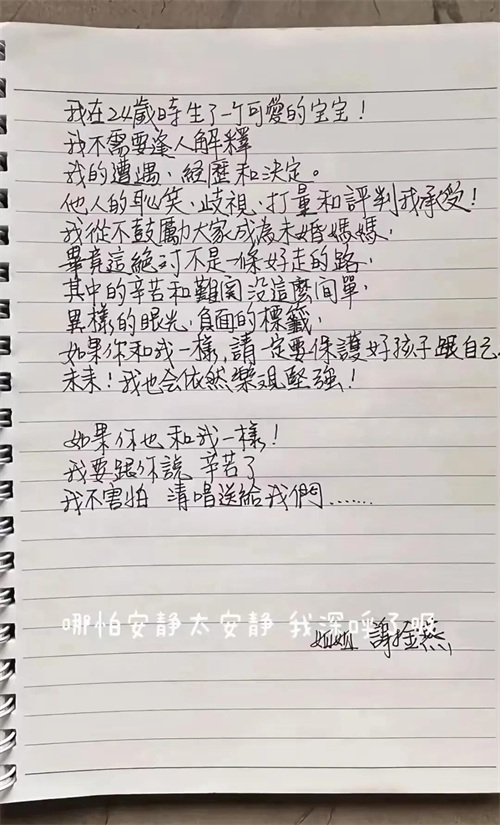 我在24歲時生了一个可愛的宝宝！
我不需要逢人解釋
我的遭遇、經歷和決定。
他人的恥笑、歧視、打量和評判我承受！
我從不鼓勵大家成為未婚媽媽，
畢竟這絕对不是一條好走的路，
其中的辛苦和難関没這麼间單，
異樣的眼光，負面的標籤，
如果你和我一樣，請一定要保護好孩子跟自己。
未来！我也会依然樂观堅强！
如果你也和我一樣！
我要跟你説 辛苦了
我不害怕 清唱送給我們……
哪怕安静太安静 我深呼了
謝金燕